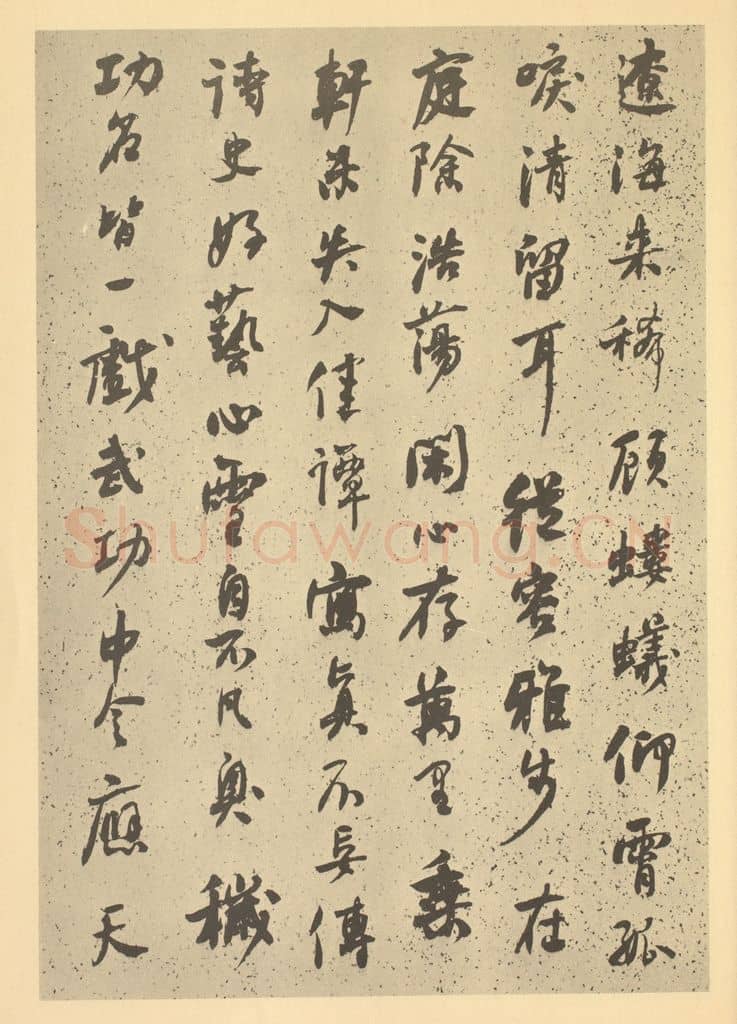 遼海来稀顧螻蟻仰霄孤
唳清留耳從容雅步在
庭除浩蕩閑心存萬里乘
軒失入佳譚寫真不妄傳
詩史好藝心靈自不凡臭穢
功名皆一戲武功中令應天
Shufawang.CN